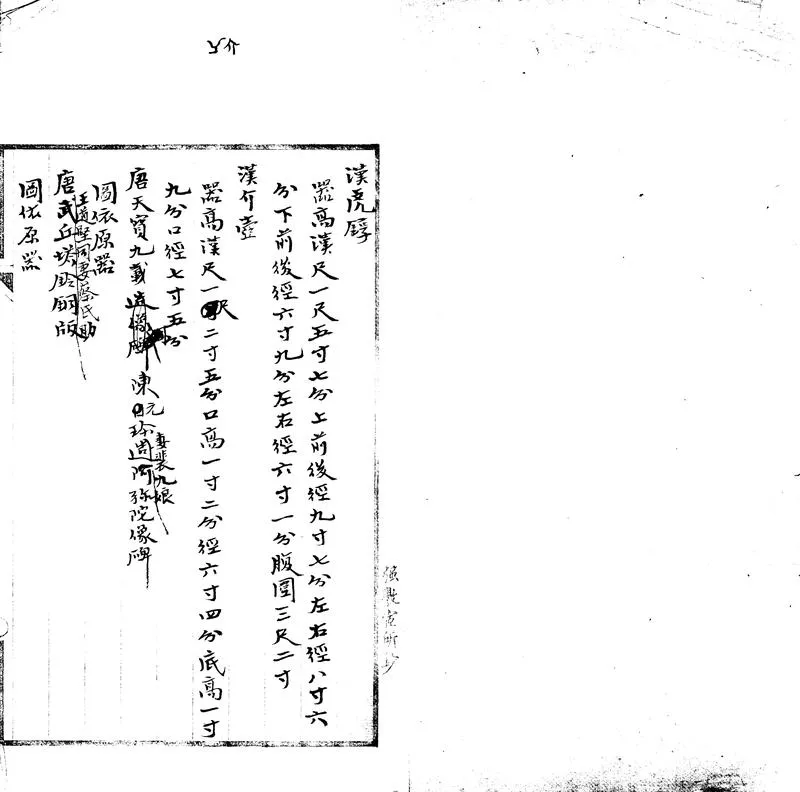 漢虎錞
器高漢尺一尺五寸七分上前後徑九寸七分左右徑八寸六
分下前後徑六寸九分左右徑六寸一分腹圍三尺二寸
漢介壺
器高漢尺一尺二寸五分口高一寸二分徑六寸四分底高一寸
九分口徑七寸五分
唐天寶九載造像碑
妻裴九娘
陳元珍週阿弥陀像碑
圖依原器
妻蔡氏助
唐武丘塔鈴銅版
圖依原器